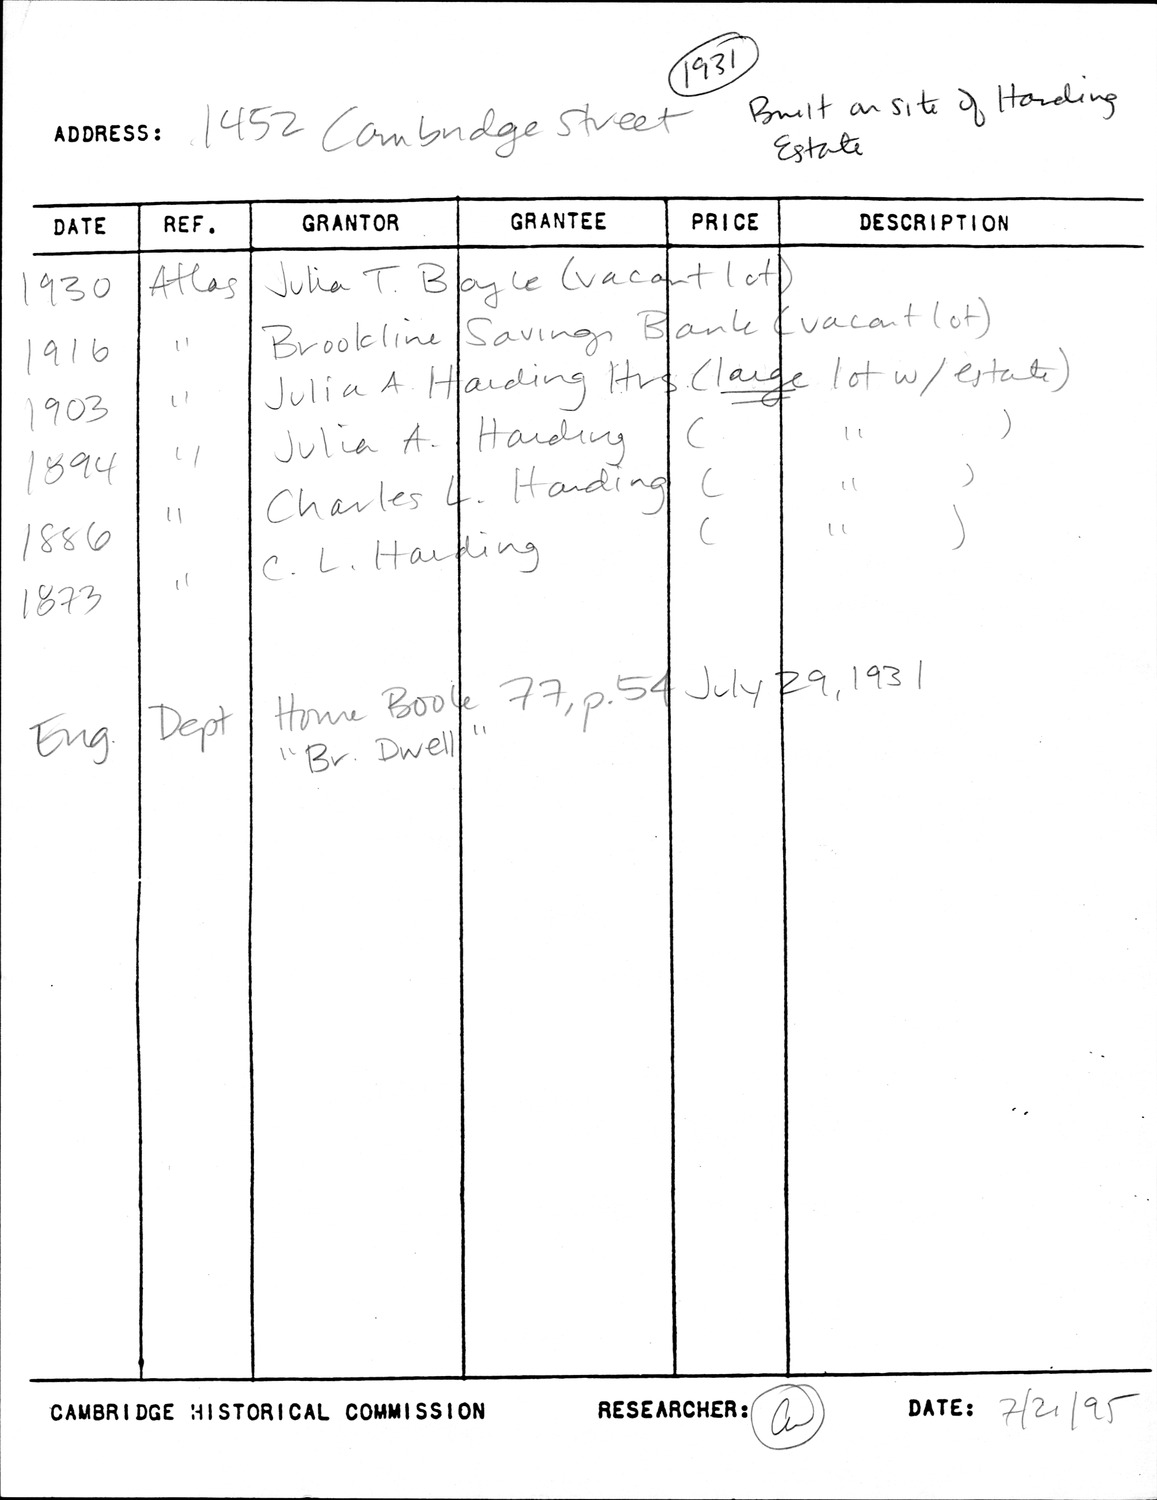 1931
ADDRESS: 1452 Cambridge Street Built on site of Harding
Estate
DATE REF. GRANTOR GRANTEE PRICE DESCRIPTION
1930 Atlas Julia T. Boyle (vacant lot)
1916 " Brookline Savings Bank (vacant lot)
1903 " Julia A. Harding Hrs (large lot w/ estate)
1894 " Julia A. Harding ( " )
1886 " Charles L. Harding ( " )
1873 " C. L. Harding ( " )
Eng. Dept Home Book 77, p. 54 July 29, 1931
"Br. Dwell"
CAMBRIDGE HISTORICAL COMMISSION RESEARCHER: DATE: 7/21/95